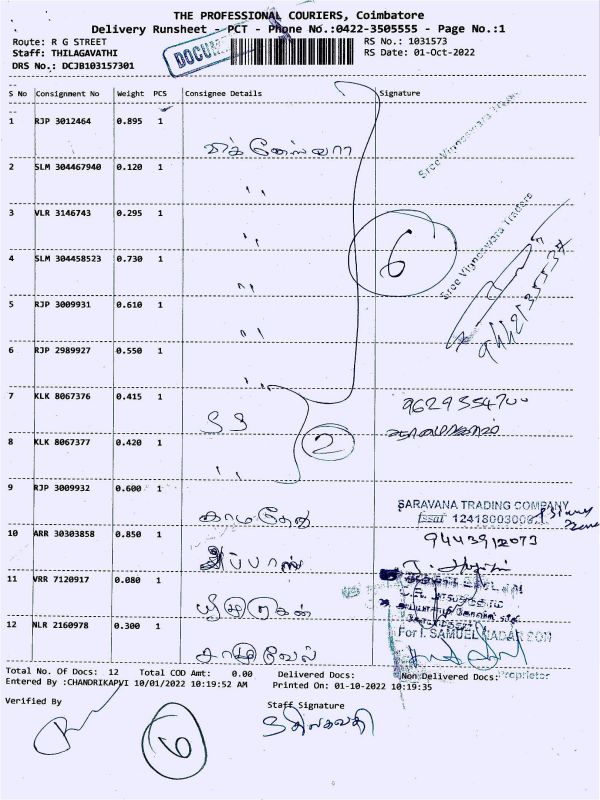 THE PROFESSIONAL COURIERS, Coimbatore
Delivery Runsheet - PCT - Phone No.:0422-3505555 - Page No.:1
Route: R G STREET
RS No.: 1031573
Staff: THILAGAVATHI
RS Date: 01-Oct-2022
DRS No.: DCJB103157301
S No Consignment No Weight PCS Consignee Details Signature
1 RJP 3012464 0.895 1
Sree Vigneswara Traders
2 SLM 304467940 0.120 1 ''
3 VLR 3146743 0.295 1 ''
Sree Vigneswara Traders
6
4 SLM 304458523 0.730 1 ''
5 RJP 3009931 0.610 1 ''
6 RJP 2989927 0.550 1 ''
7 KLK 8067376 0.415 1 SS
9629554700
2
8 KLK 8067377 0.420 1 ''
9 RJP 3009932 0.600 1 காமதேனு
SARAVANA TRADING COMPANY
fssai
10 ARR 30303858 0.850 1 அப்பாஸ்
9443912073
11 VRR 7120917 0.080 1 முருகன்
12 NLR 2160978 0.300 1 சாமுவேல்
For I. SAMUEL NADAR SON
Proprietor
Total No. Of Docs: 12 Total COD Amt: 0.00 Delivered Docs: Non Delivered Docs:
Entered By :CHANDRIKAPVI 10/01/2022 10:19:52 AM Printed On: 01-10-2022 10:19:35
Verified By
Staff Signature
திலகவதி
6